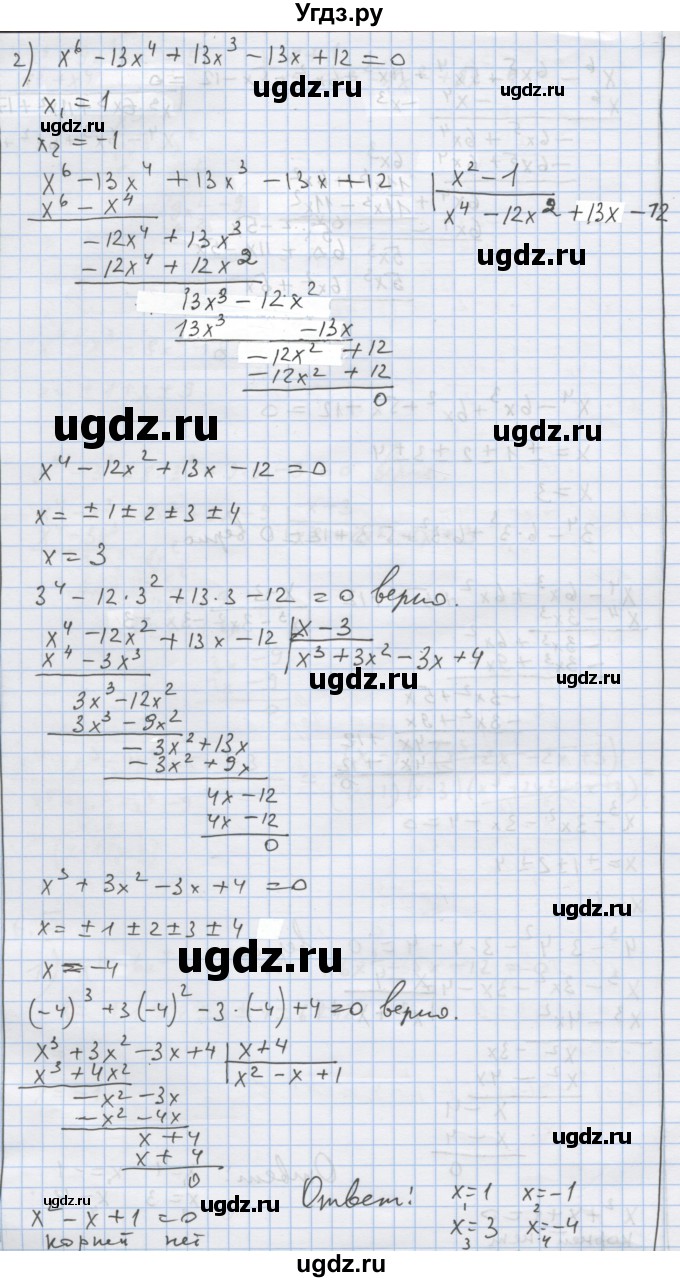 Угдз.ру
2) x⁶ - 13x⁴ + 13x³ - 13x + 12 = 0
ugdz.ru
ugdz.ru
x₁ = 1
ugdz.ru
x₂ = -1
x⁶ - 13x⁴ + 13x³ - 13x + 12 | x² - 1
x⁶ - x⁴ x⁴ - 12x² + 13x - 12
-12x⁴ + 13x³
ugdz.ru
-12x⁴ + 12x²
13x³ - 12x²
13x³ - 13x
-12x² + 12
-12x² + 12
0
ugdz.ru
ugdz.ru
x⁴ - 12x² + 13x - 12 = 0
x = ±1 ±2 ±3 ±4
x = 3
3⁴ - 12·3² + 13·3 - 12 = 0 верно.
x⁴ - 12x² + 13x - 12 | x - 3
x⁴ - 3x³ x³ + 3x² - 3x + 4
ugdz.ru
3x³ - 12x²
3x³ - 9x²
-3x² + 13x
-3x² + 9x
4x - 12
4x - 12
0
x³ + 3x² - 3x + 4 = 0
ugdz.ru
x = ±1 ±2 ±3 ±4
ugdz.ru
x = -4
(-4)³ + 3(-4)² - 3·(-4) + 4 = 0 верно.
x³ + 3x² - 3x + 4 | x + 4
x³ + 4x² x² - x + 1
-x² - 3x
-x² - 4x
x + 4
ugdz.ru
x + 4
0
ugdz.ru
ugdz.ru
Ответ: x₁ = 1 x₂ = -1
x² - x + 1 = 0 x₃ = 3 x₄ = -4
корней нет